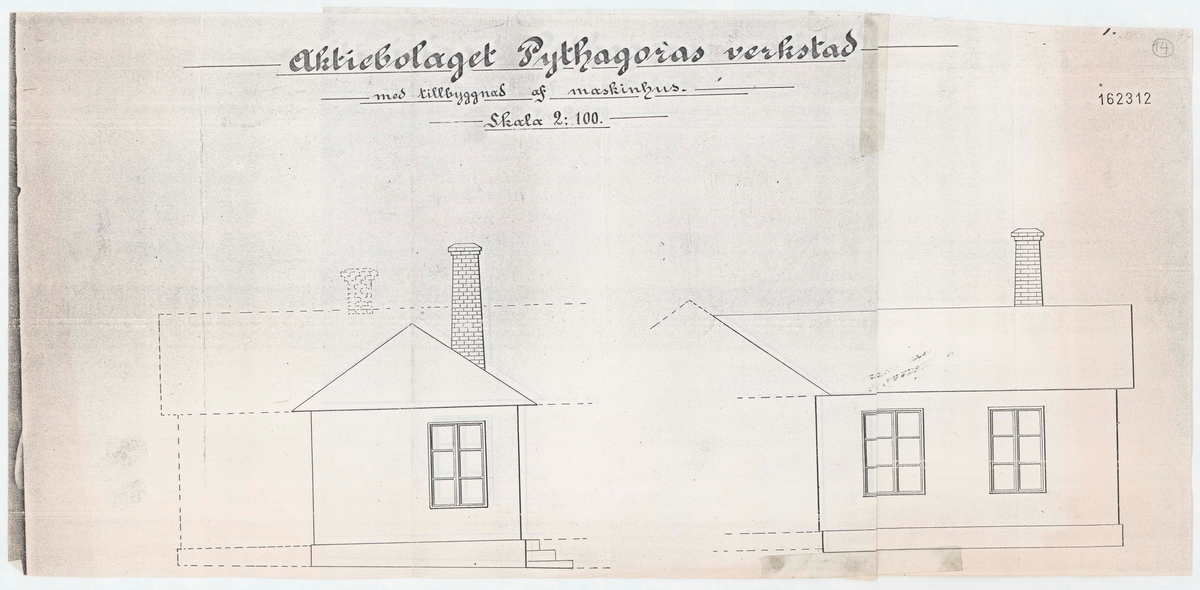 Aktiebolaget Pythagoras verkstad
med tillbyggnad af maskinhus.
Skala 2:100.
14
162312